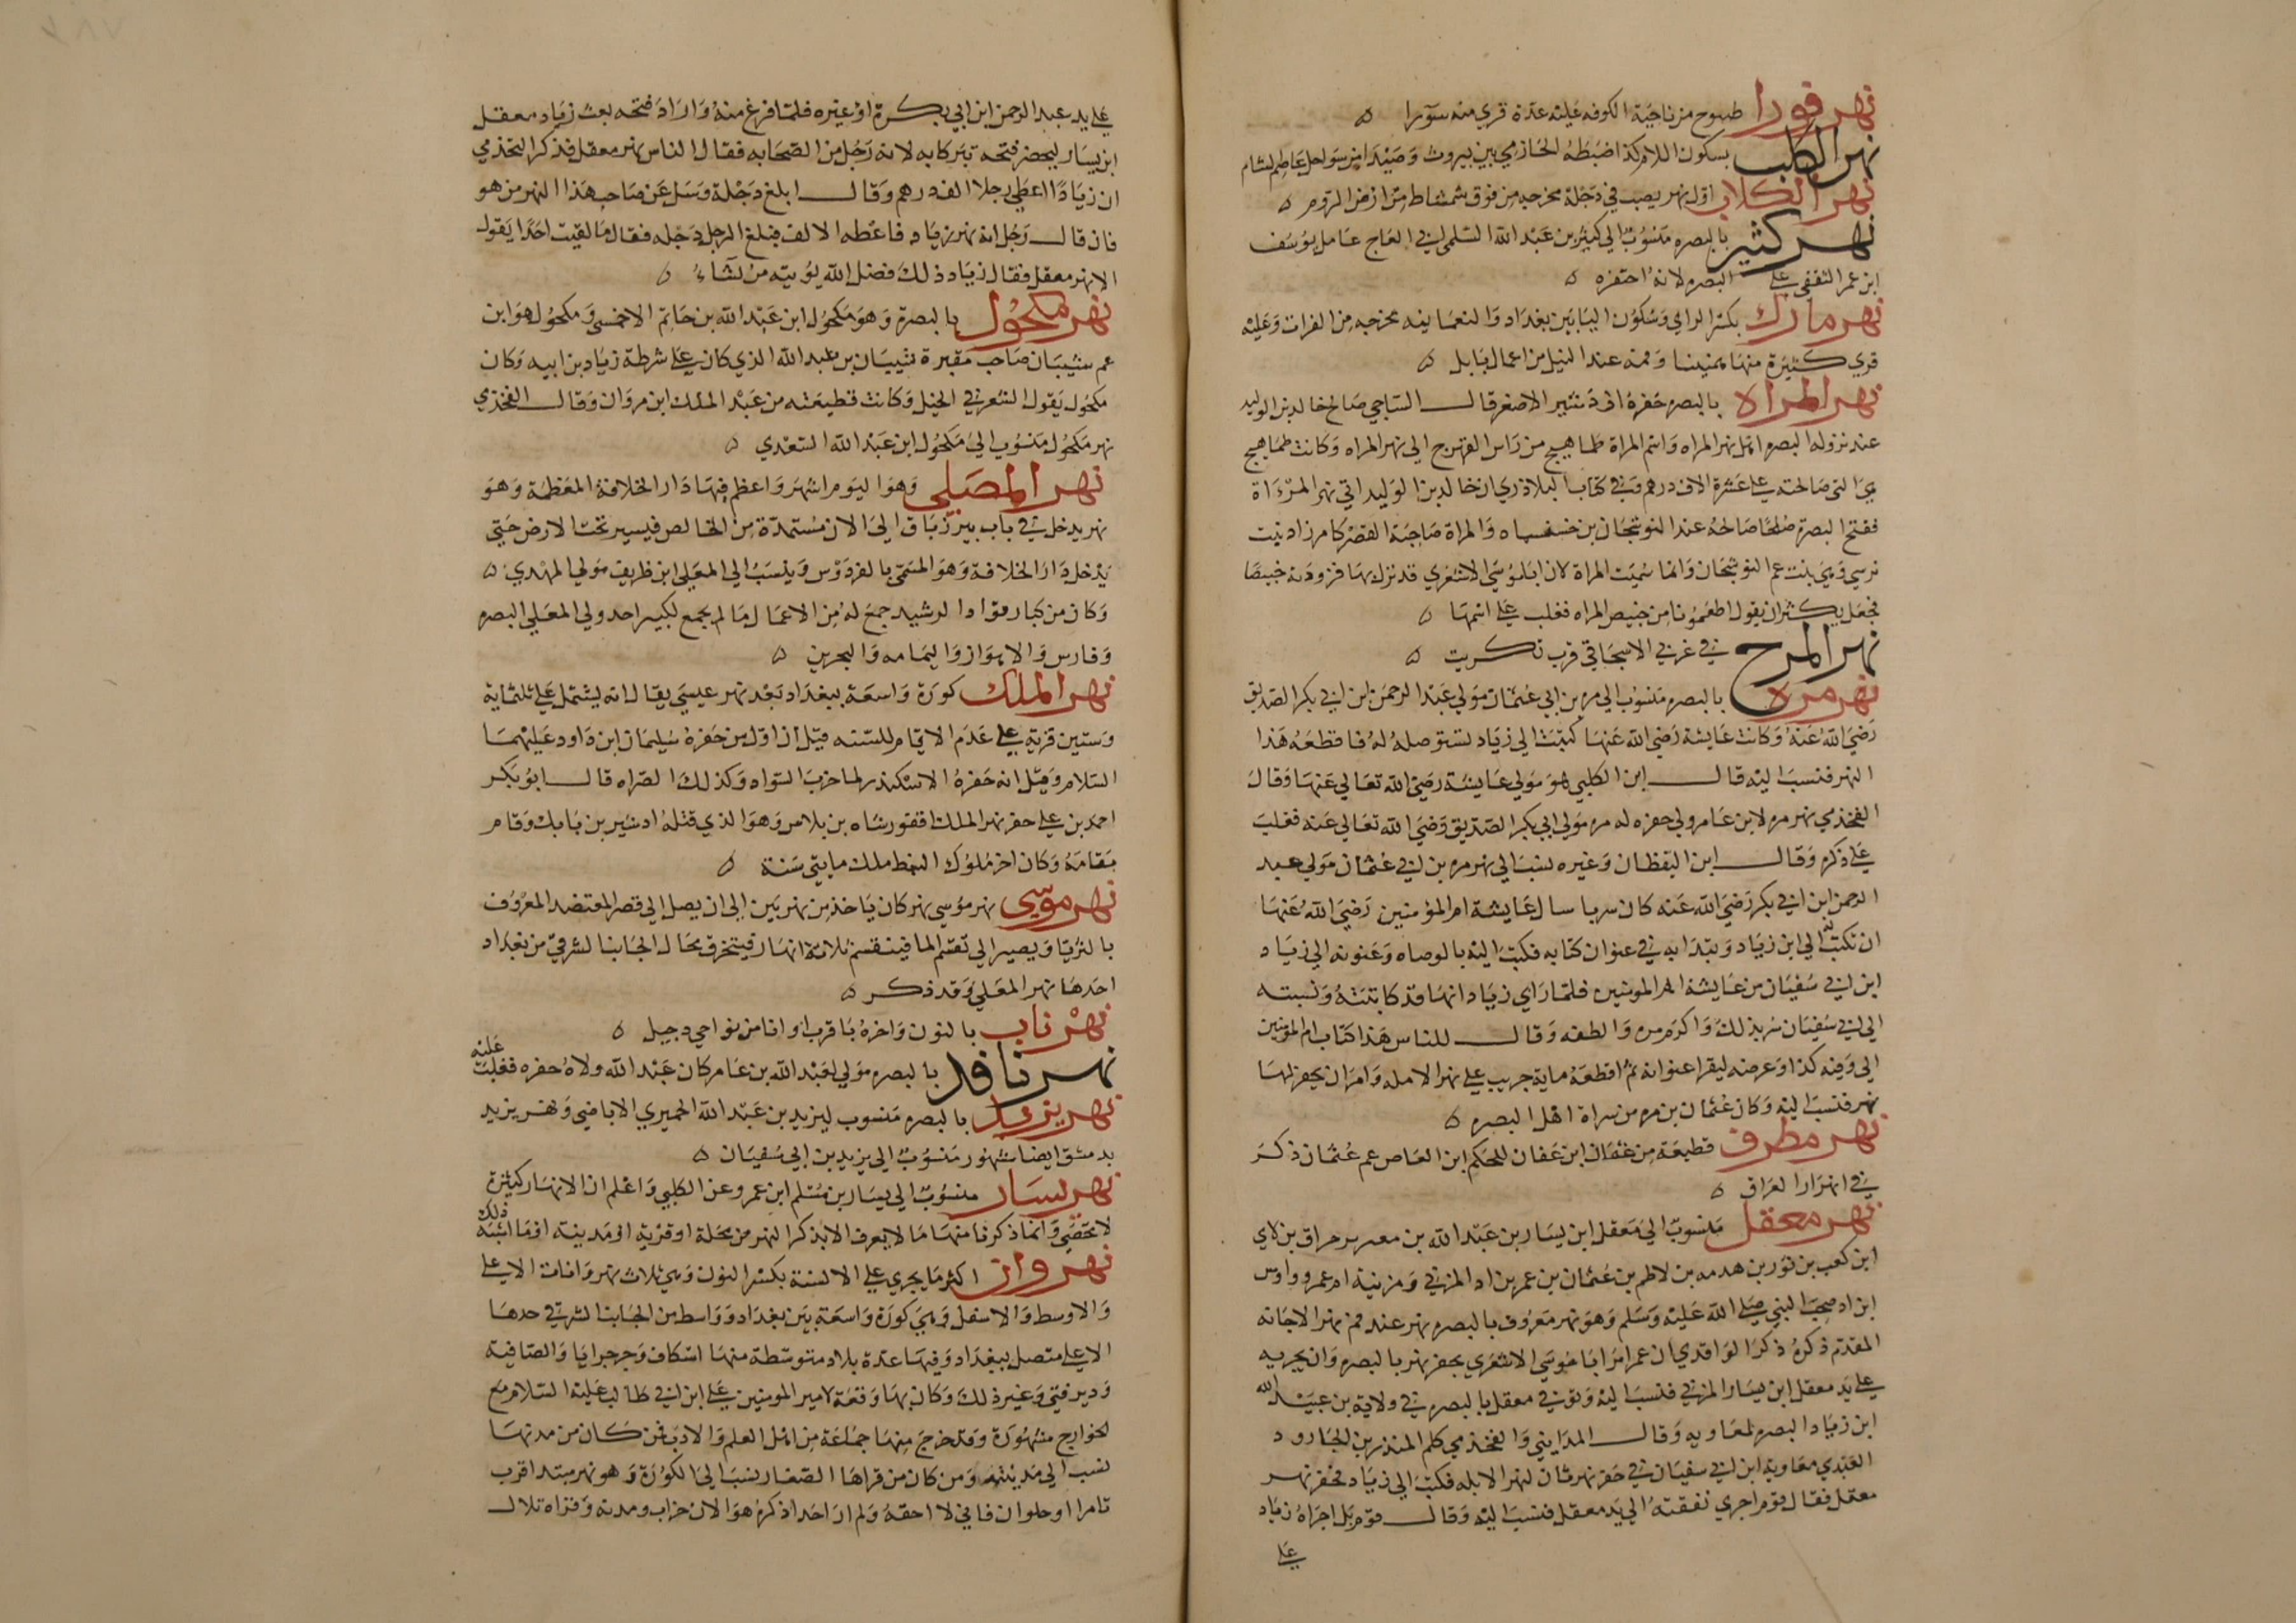 نهر قورا طسوج من ناحية الكوفه عليه عدة قري منه سورا ه
نهر الكلب بسكون اللام كذا ضبطه الحازمي بين بيروت وصيدا من سواحل عاصم الشام
نهر الكلاب اول نهر يصب في دجلة مخرجه من فوق شمشاط من ارض الروم ه
نهر كثير بالبصره منسوب الي كثير بن عبد الله السلمي ابي العاج عامل يوسف
ابن عمر الثقفي علي البصره لانه احتفره ه
نهر مارك بكسر الراي وسكون اليا بين بغداد والنعمانيه مخرجه من الفرات وعليه
قري كثيرة منها همينيا وفمه عند النيل من اعمال بابل ه
نهر المراه بالبصره حفره اردشير الاصغر قال الساجي صالح خالد بن الوليد
عند نزوله البصره اهل نهر المراه واسم المراة طماهيج من راس الفهرج الي نهر المراه وكانت طماهيج
هي التي صالحته علي عشرة الاف درهم وفي كتاب البلاذري ان خالد بن الوليد اتي نهر المرءاة
ففتح البصرة صلحا صالحه عند النوشجان بن خسنسماه والمراة صاحبة القصر كامرزاد بنت
نرسي وهي بنت عم النوشجان وانما سميت المراة لان ابا موسي الاشعري قد نزل بها فزودته خبيصا
فجعل يكثر ان يقول اطعمونا من خبيص المراه فغلب علي اسمها ه
نهر المرج في غربي الاسحاقي قرب تكريت ه
نهر مرة بالبصره منسوب الي مره بن ابي عثمان مولي عبد الرحمن ابن ابي بكر الصديق
رضي الله عنه وكانت عايشة رضي الله عنها كتبت الي زياد تستوصله له فاقطعه هذا
النهر فنسب اليه قال ابن الكلبي هو مولي عايشة رضي الله تعالي عنها وقال
القحذمي نهر مره لابن عامر ولي حفره له مره مولي ابي بكر الصديق رضي الله تعالي عنه فغلب
علي ذكره وقال ابن اليقظان وغيره نسب الي نهر مره بن ابي عثمان مولي عبد
الرحمن ابن ابي بكر رضي الله عنه كان سريا سال عايشة ام المؤمنين رضي الله عنها
ان تكتب له الي ابن زياد وتبدا به في عنوان كتابه فكتب اليه بالوصاه وعنونه الي زياد
ابن ابي سفيان من عايشة ام المومنين فلما راي زياد انها قد كاتبته ونسبته
الي ابي سفيان سر بذلك واكرم مره والطفه وقال للناس هذا كتاب ام المؤمنين
الي وفيه كذا وعرضه ليقرا عنوانه ثم اقطعه ماية جريب علي نهر الابله وامر ان يحفر لها
نهر فنسب اليه وكان عثمان بن مره من سراة اهل البصره ه
نهر مطرف قطيعة من عثمان ابن عفان للحكم ابن العاص عم عثمان ذكر
في انهار العراق ه
نهر معقل منسوب الي معقل ابن يسار بن عبد الله بن معبر بن حراق بن لاي
ابن كعب بن ثور بن هدمه بن لاطم بن عثمان بن عمر بن اد المزني ومزينة ام عمرو واوس
ابن اد صحب النبي صلي الله عليه وسلم وهو نهر معروف بالبصره نهر عند فم نهر الاجانه
المقدم ذكره ذكر الواقدي ان عمر امر ابا موسي الاشعري بحفر نهر بالبصره وان يجريه
علي يد معقل ابن يسار المزني فنسب اليه وتوفي معقل بالبصره في ولاية بن عبيد الله
ابن زياد البصره لمعاويه وقال المدايني والقحذمي كلم المنذر بن الجارود
العبدي معاوية ابن ابي سفيان في حفر نهر ثان لنهر الابله فكتب الي زياد فحفر نهر
معقل فقال قوم اجري نفقته الي يد معقل فنسب اليه وقال قوم بل اجراه زياد
علي
علي يد عبد الرحمن ابن ابي بكرة او غيره فلما فرغ منه واراد فتحه بعث زياد معقل
ابن يسار ليحضر فتحه تبركا به لانه رجل من الصحابه فقال الناس نهر معقل فذكر القحذمي
ان زيادا اعطي رجلا الف درهم وقال ابلغ دجلة وسل عن صاحب هذا النهر من هو
فان قال رجل انه نهر زياد فاعطه الالف فبلغ الرجل دجله فقال ما لقيت احدا يقول
الا نهر معقل فقال زياد ذلك فضل الله يؤتيه من يشاء ه
نهر مكحول بالبصرة وهو مكحول ابن عبد الله بن حاتم الاحمسي ومكحول هو ابن
عم شيبان صاحب مقبرة شيبان بن عبد الله الذي كان علي شرطة زياد بن ابيه وكان
مكحول يقول الشعر في الخيل وكانت قطيعته من عبد الملك ابن مروان وقال القحذمي
نهر مكحول منسوب الي مكحول ابن عبد الله السعدي ه
نهر المصلي وهو اليوم اشهر واعظم فيها دار الخلافة المعظمة وهو
نهر يدخل في باب بيرزباق الي الان مستمدة من الخالص فيسير تحت الارض حتي
يدخل دار الخلافة وهو المسمي بالفردوس وينسب الي المعلي ابن طريف مولي المهدي ه
وكان من كبار قواد الرشيد جمع له من الاعمال ما لم يجمع لكبير احد ولي المعلي البصره
وفارس والاهواز واليمامه والبحرين ه
نهر الملك كورة واسعة ببغداد بعد نهر عيسي يقال انه يشتمل علي ثلثماية
وستين قرية علي عدم الايام للسنه قيل ان اول من حفره سليمان ابن داود عليهما
السلام وقيل انه حفره الاسكندر لما خرب السواد وكذلك الصراه قال ابو بكر
احمد بن علي حفر نهر الملك اقفورشاه بن بلاس وهو الذي قتله اردشير بن بابك وقام
مقامه وكان اخر ملوك النبط ملك مايتي سنة ه
نهر موسي نهر موسي نهر كان ياخذ من نهر بين الي ان يصل الي قصر المعتضد المعروف
بالثريا ويصير الي تقسم الما فينقسم ثلاثة انهار فيتخرق بحال الجانب الشرقي من بغداد
احدها نهر المعلي وقد ذكر ه
نهر ناب بالنون واخره با قرب اوانا من نواحي دجيل ه
نهر نافذ بالبصره مولي لعبد الله بن عامر كان عبد الله ولاه حفره فغلب عليه
نهر يزيد بالبصره منسوب ليزيد بن عبد الله الحميري الاباضي ونهر يزيد
بدمشق ايضا مشهور منسوب الي يزيد بن ابي سفيان ه
نهر يسار منسوب الي يسار بن مسلم ابن عمرو عن الكلبي واعلم ان الانهار كثيرة
لا تحصي وانما ذكرنا منها ما لا يعرف الا بذكر النهر من محلة او قرية او مدينه او ما اشبه ذلك
نهروان اكثر ما يجري علي الالسنة بكسر النون وهي ثلاث نهروانات الاعلي
والاوسط والاسفل وهي كورة واسعة بين بغداد وواسط من الجانب الشرقي حدها
الاعلي متصل ببغداد وفيها عدة بلاد متوسطة منها اسكاف وجرجرايا والصافية
ودير قني وغير ذلك وكان بها وقعة لامير المومنين علي ابن ابي طالب عليه السلام مع
الخوارج مشهورة وقد خرج منها جماعة من اهل العلم والادب فمن كان من مدنها
نسب الي مدينته ومن كان من قراها الصغار نسب الي الكورة وهو نهر مبتدا قرب
تامرا او حلوان فاني لا احقه ولم ار احدا ذكره هو الان خراب ومدنه وقراه تلال